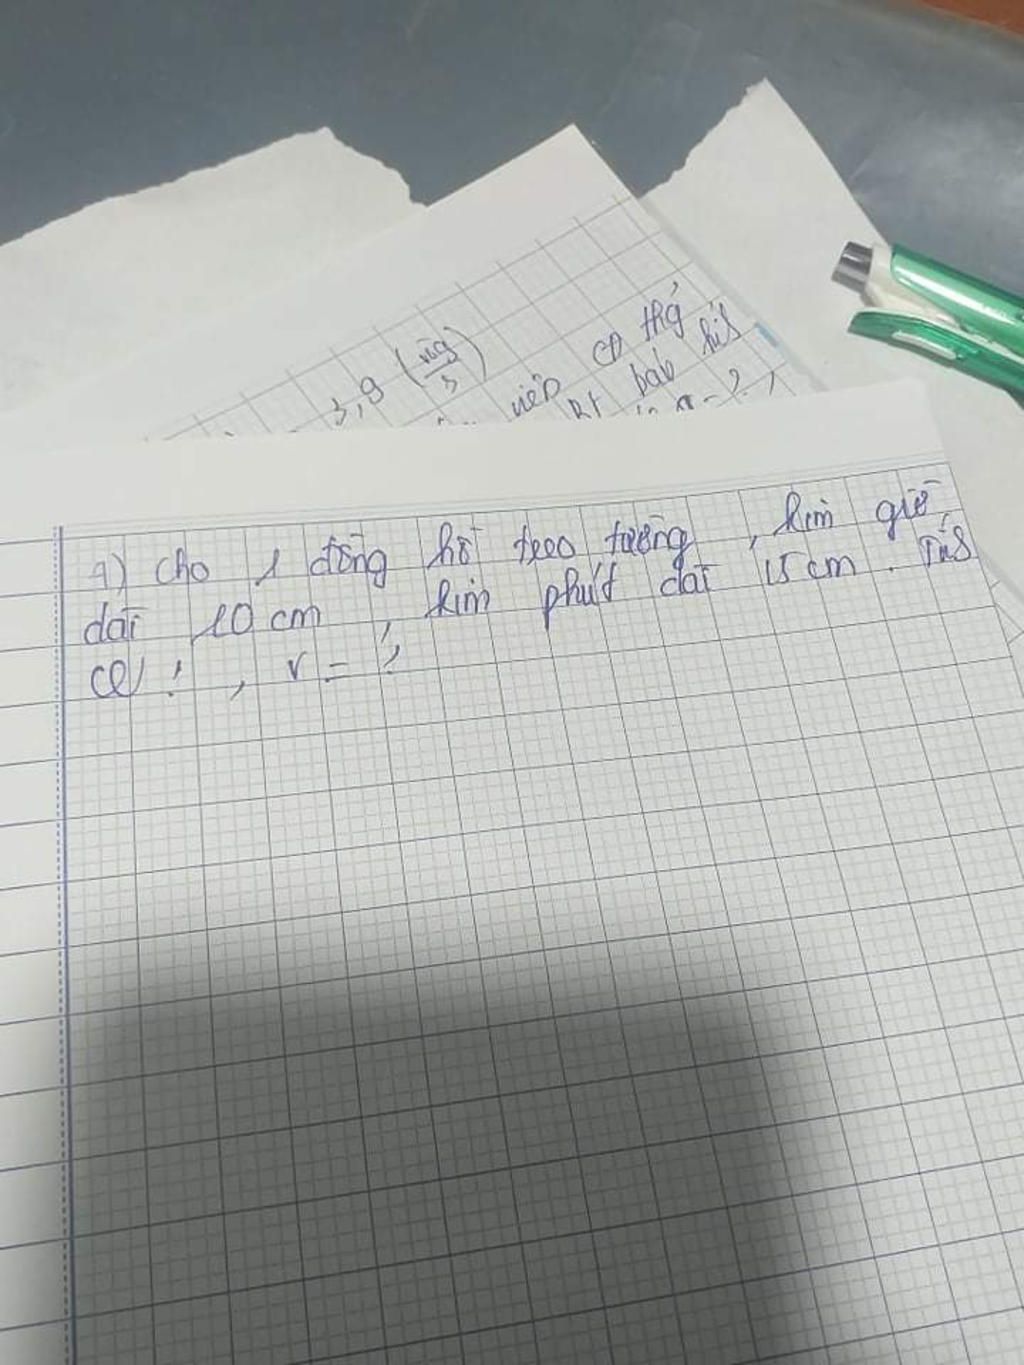 3,9 (vòg/s)
viên có thể
Rt bab kís
4) Cho 1 đồng hồ treo tường, kim giờ
dài 10 cm, kim phút dài 15 cm. Tính
ω ?, v = ?